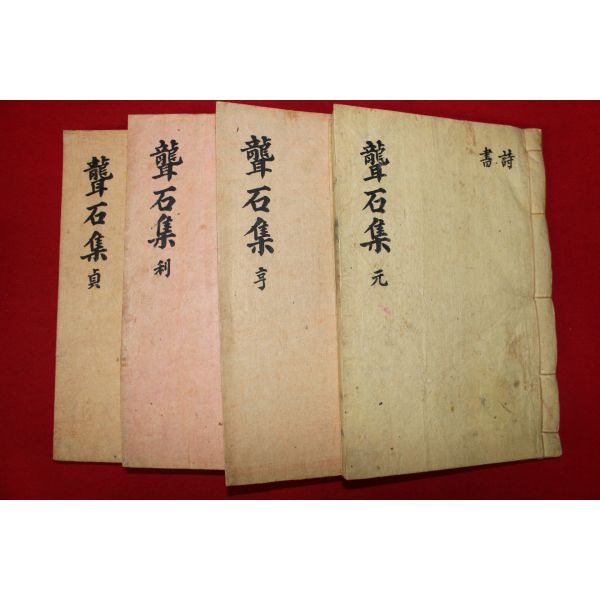 聾石集 元
詩
書
聾石集 亨
聾石集 利
聾石集 貞